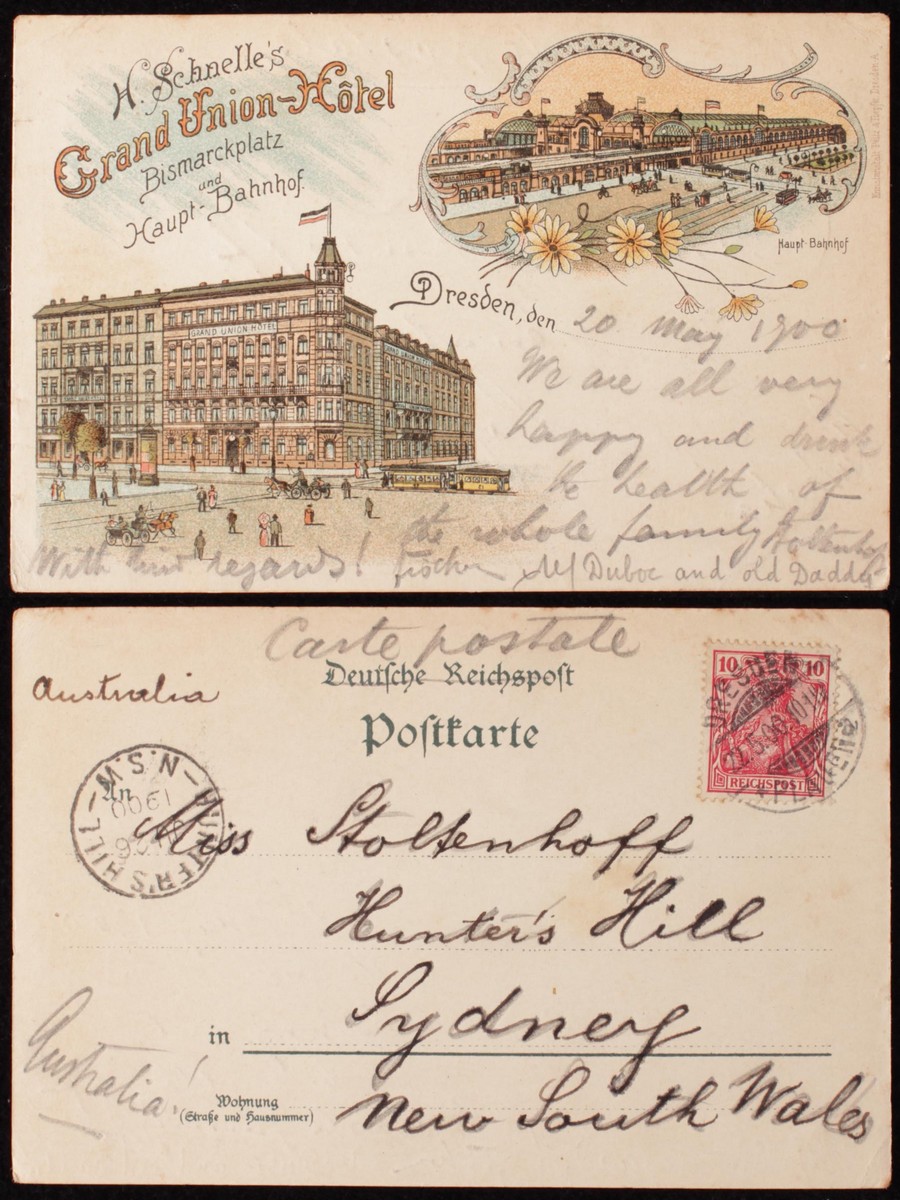 H. Schnelle's
Grand Union-Hôtel
Bismarckplatz
und
Haupt-Bahnhof.
Haupt-Bahnhof
GRAND UNION-HOTEL
Dresden, den 20 May 1900
We are all very
happy and drink
the health of
the whole family Stoltenhoff
With kind regards! Fischer M/ Duboc and old Daddy
Carte postale
Deutsche Reichspost
Postkarte
Australia
10 10
REICHSPOST
DRESDEN
ALTSTADT
HUNTER'S HILL - N.S.W -
1900
An
Miss Stoltenhoff
Hunter's Hill
in Sydney
Australia!
Wohnung
(Straße und Hausnummer)
New South Wales